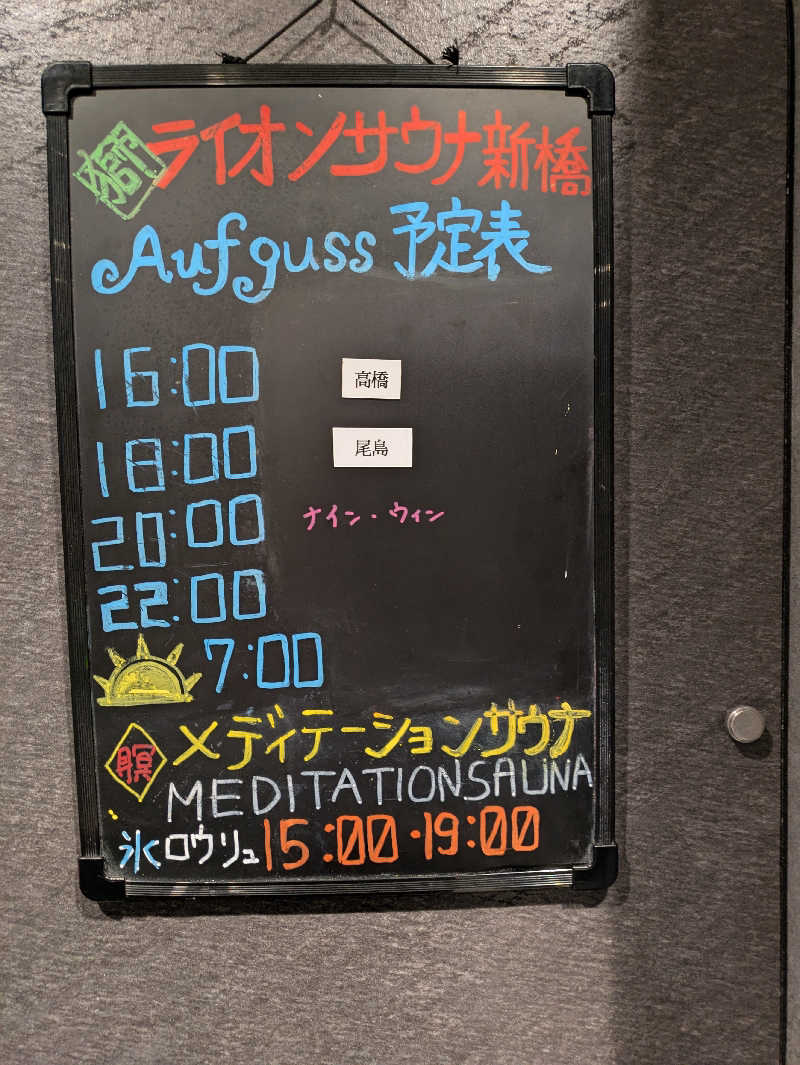 獅 ライオンサウナ新橋
Aufguss 予定表
16:00 高橋
18:00 尾島
20:00 ナイン・ウィン
22:00
7:00
瞑 メディテーションサウナ
MEDITATIONSAUNA
氷ロウリュ 15:00・19:00